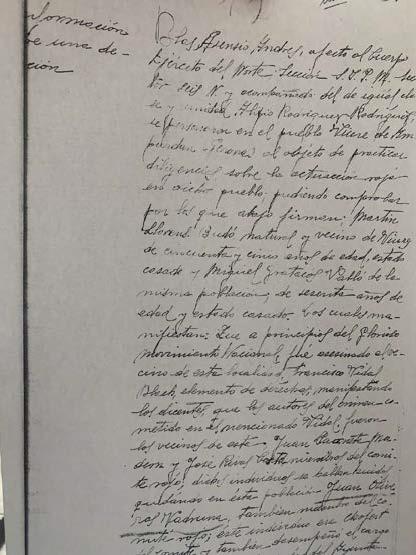 formación
de una de-
ción
Blas Asensio Andres, afecto al Cuerpo
Ejército del Norte, Sección S.I.P.M.
N. y acompañado del de igual cla
se y unidad, Rodriguez Rodriguez,
se personaron en el pueblo Viure de Am
purdan (Gerona) al objeto de practicar
diligencias sobre la actuación roja
en dicho pueblo, pudiendo comprobar
por los que abajo firman; Martin
Llorens Budó natural y vecino de Viure
de cincuenta y cinco años de edad, estado
casado y Miguel Gratacos de la
misma población, de sesenta años de
edad y estado casado. Los cuales ma-
nifiestan: Que a principios del Glorioso
Movimiento Nacional, fué asesinado el ve-
cino de esta localidad, Francisco Vidal
elemento de derechas, manifestando
los dicentes, que los autores del crimen co-
metido en el mencionado Vidal, fueron
los vecinos de este - Juan Ma-
y José miembros del comi-
te rojo, dichos individuos se hallan huidos
quedando en esta población Juan Olive
ras tambien miembro del co-
mite rojo, este individuo era chofert
del comite y tambien desempeñó el cargo